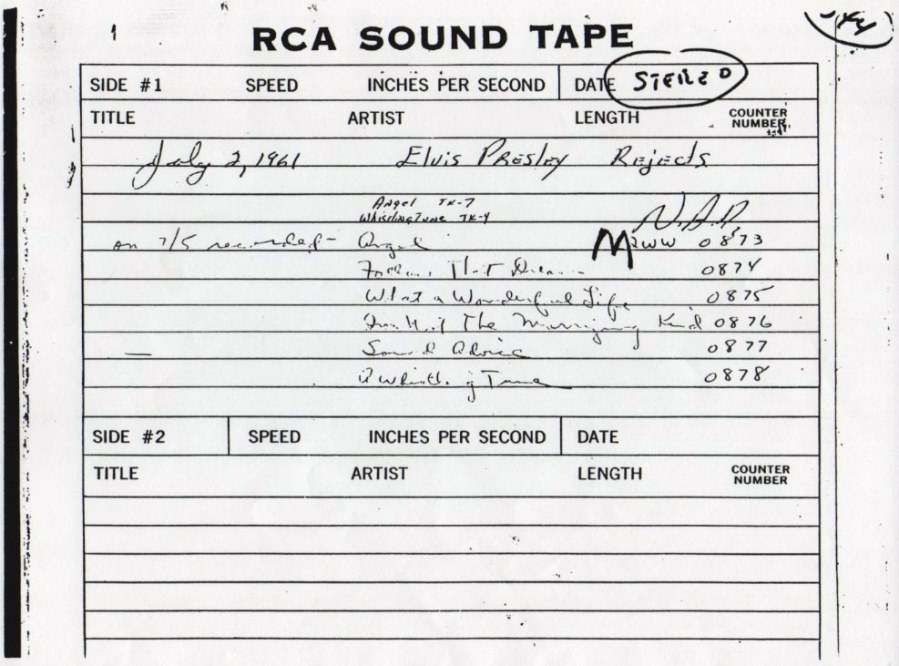 RCA SOUND TAPE
SIDE #1 SPEED INCHES PER SECOND DATE STEREO
TITLE ARTIST LENGTH COUNTER NUMBER
July 2, 1961 Elvis Presley Rejects
Angel TK-7
Whistling Tune TK-4
on 7/5 recorded- Angel 2WW 0873
Follow That Dream 0874
What a Wonderful Life 0875
I'm Not The Marrying Kind 0876
— Sound Advice 0877
A Whistling Tune 0878
SIDE #2 SPEED INCHES PER SECOND DATE
TITLE ARTIST LENGTH COUNTER NUMBER